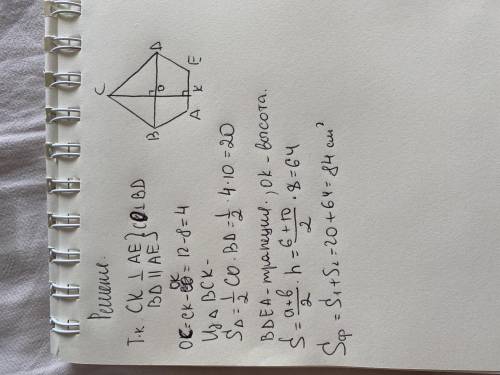 Решение.
C
B
D
O
A
K
E
Т.к CK ⊥ AE } CO ⊥ BD
BD || AE
OC = CK - OK = 12 - 8 = 4
Из △ BCK -
S△ = 1/2 CO · BD = 1/2 · 4 · 10 = 20
BDEA - трапеция., OK - высота.
S = a+b/2 · h = 6+10/2 · 8 = 64
Sф = S1 + S2 = 20 + 64 = 84 см²